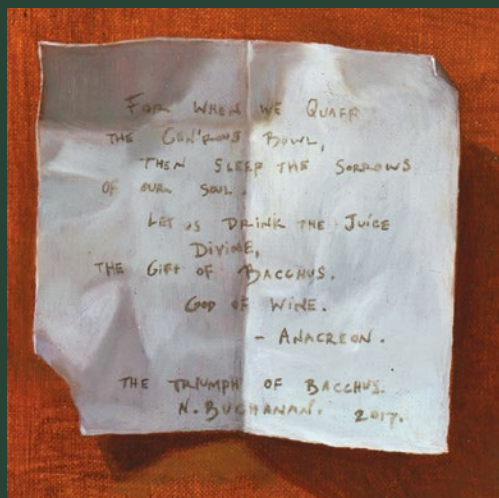 FOR WHEN WE QUAFF
THE GEN'ROUS BOWL,
THEN SLEEP THE SORROWS
OF OUR SOUL.
LET US DRINK THE JUICE
DIVINE,
THE GIFT OF BACCHUS.
GOD OF WINE.
- ANACREON.
THE TRIUMPH OF BACCHUS.
N. BUCHANAN. 2017.